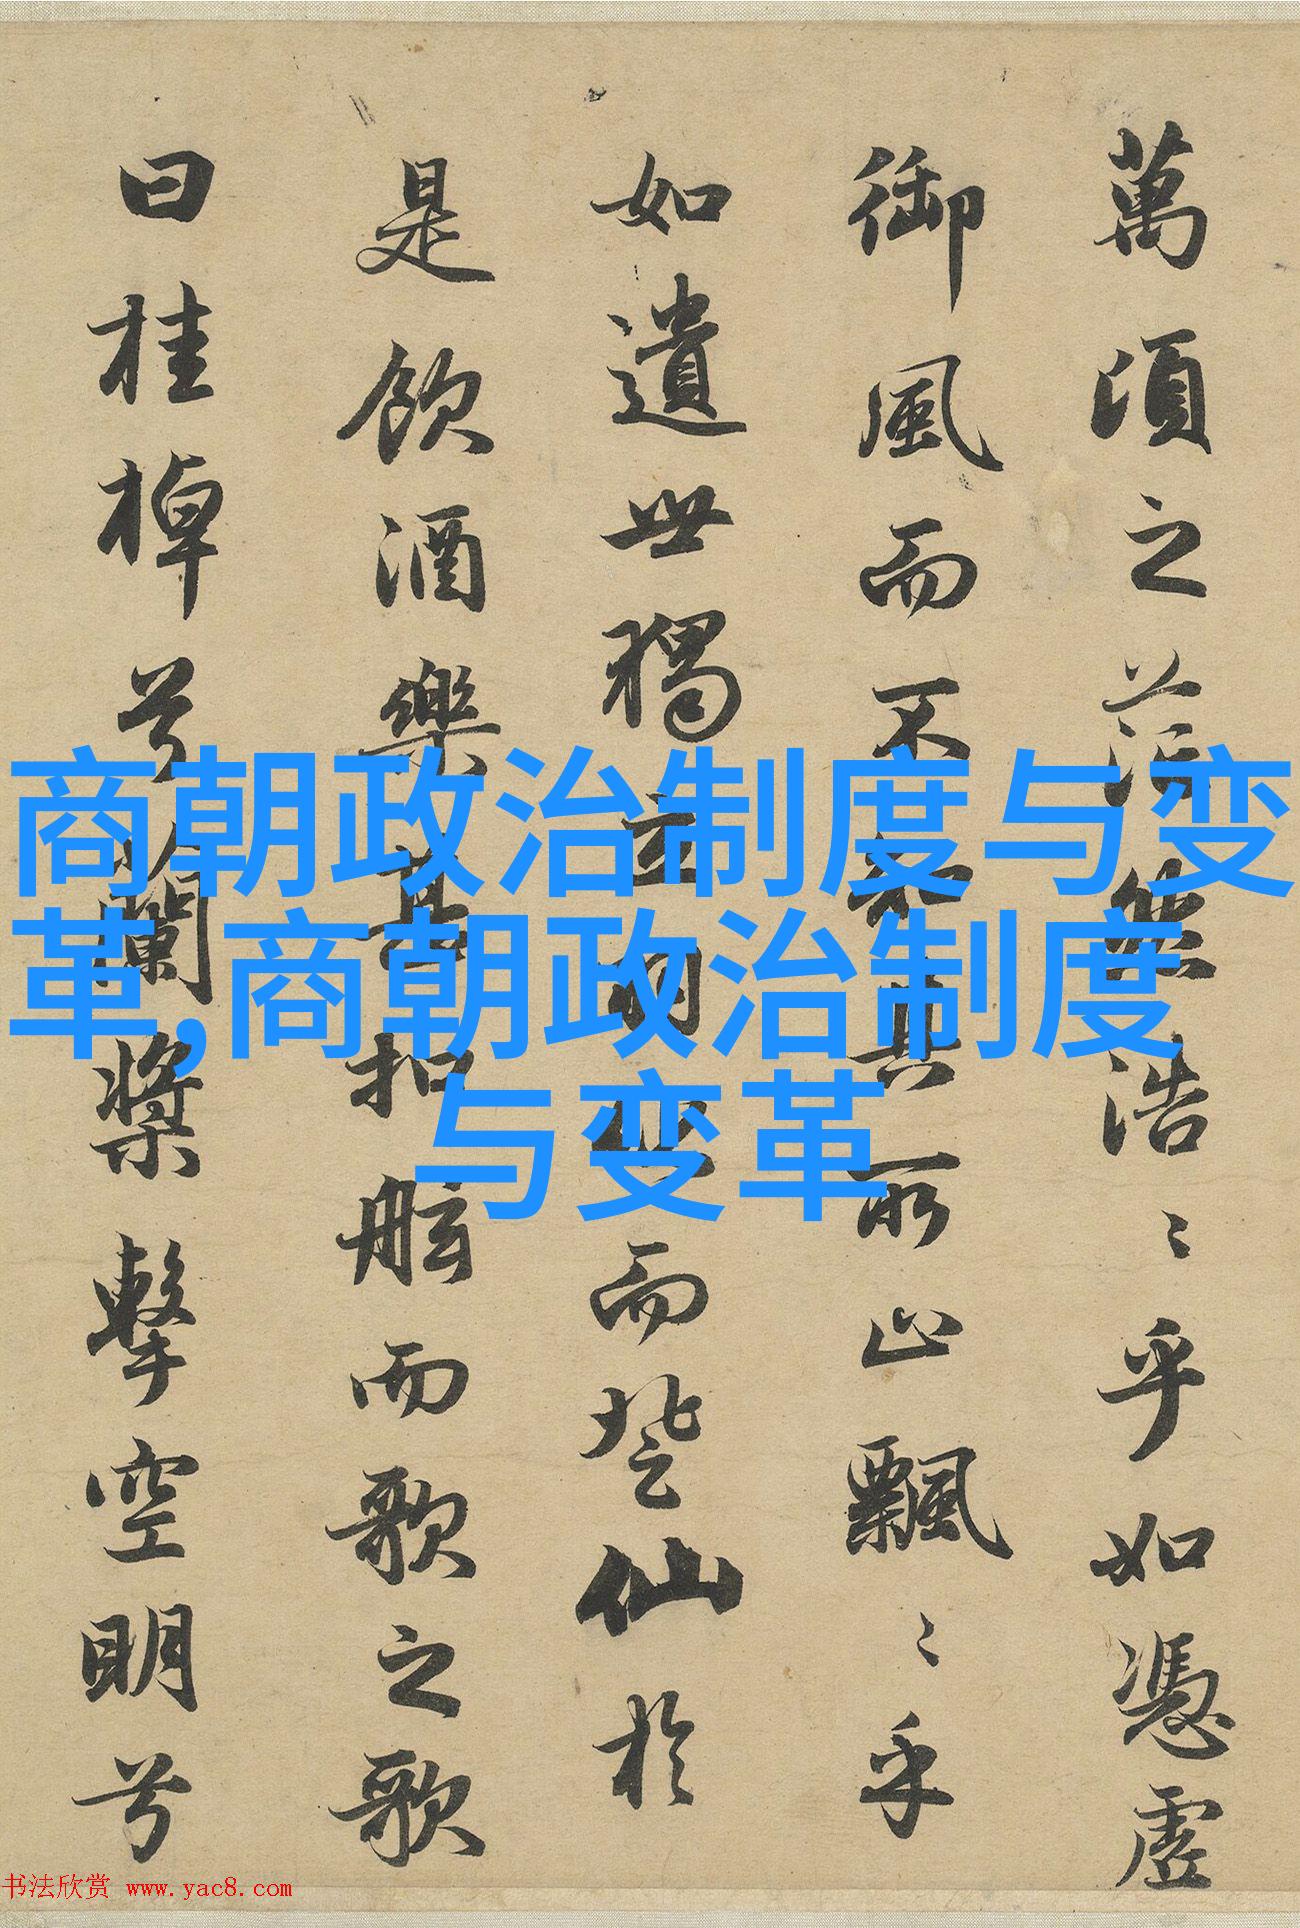 萬頃之茫然浩〻乎如憑虛
御風而不知其所止飄〻乎
如遺世獨立羽化而登仙於
是飲酒樂甚扣舷而歌之歌
曰桂棹兮蘭槳擊空明兮
商朝政治制度与变
革,商朝政治制度
与变革
书法欣赏 www.yac8.com